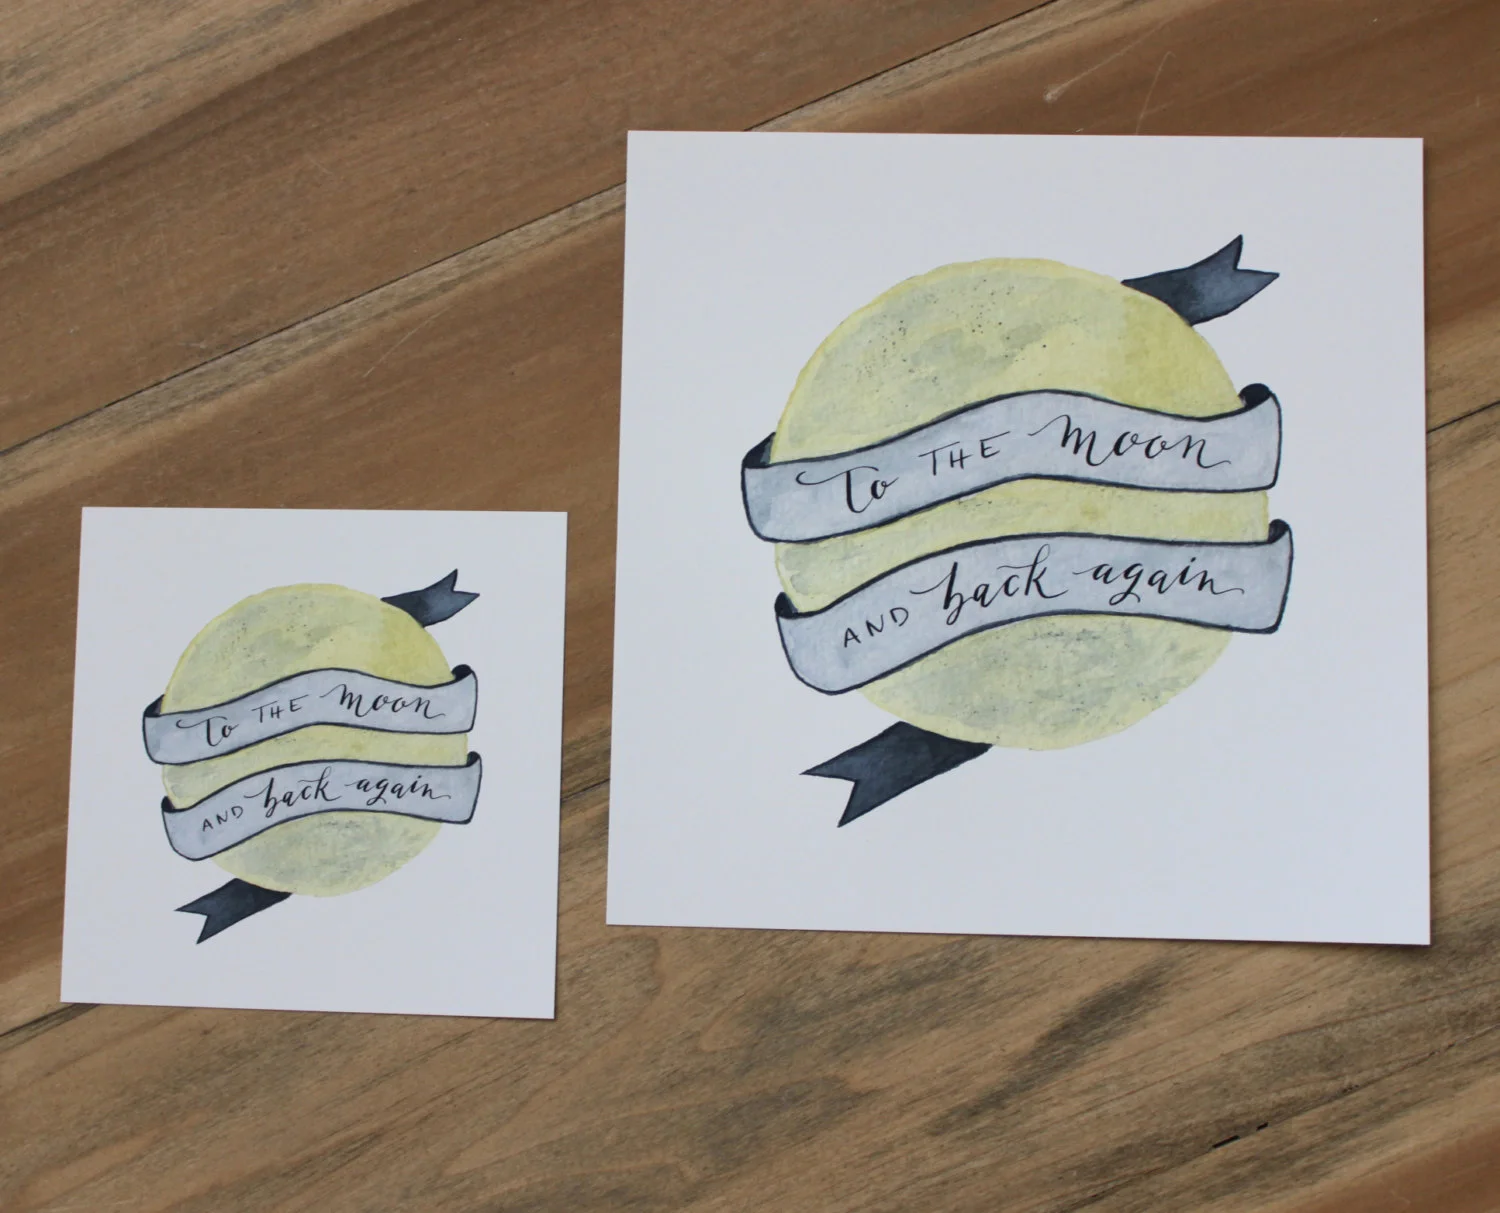 To THE Moon
AND back again
To THE Moon
AND back again